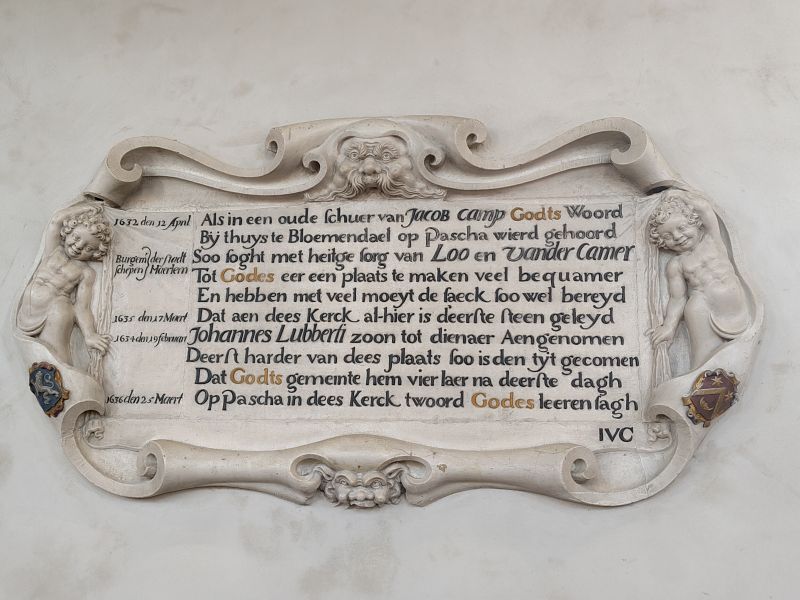 1632 den 12 April Als in een oude schuer van JACOB CAMP Godts Woord
Bÿ thuys te Bloemendael op Pascha wierd gehoord
Burgem der stadt Soo soght met heilge sorg van Loo en vander Camer
schepen s Haerlem Tot Godes eer een plaats te maken veel bequamer
En hebben met veel moeyt de saeck soo wel bereyd
1635 den 17 Maert Dat aen dees Kerck al-hier is d'eerste steen geleyd
1634 den 19 februari Johannes Lubberti zoon tot dienaer Aengenomen
Deerst harder van dees plaats soo is den tÿt gecomen
Dat Godts gemeinte hem vier Iaer na deerste dagh
1636 den 25 Maert Op Pascha in dees Kerck twoord Godes leeren sagh
IVC